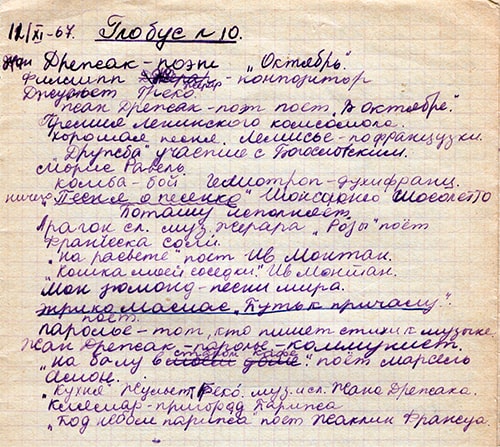 12/XI-67. Глобус №10.
Жан Дрежсак - поэт „Октябрь".
Филипп Жерар - композитор
Джульетт Греко.
Жан Дрежсак - поэт поёт „В октябре".
Премия Ленинского комсомола.
Хорошая песня. Лемисье - по французки.
„Дружба" участие с Богословским.
Морис Равель.
Ковба - бой. Гелиотроп - духи франц.
ничего „Песня о песенке"
Поташу исполняет.
Арагон сл. муз. Жерара „Розы" поёт
Франческа Соли.
„На рассвете" поёт Ив Монтан.
„Кошка моей соседки." Ив Монтан.
Мон зюмонд - песни мира.
Энрико Масиас „Путь к причалу".
поёт.
паролье - тот, кто пишет стихи к музыке.
Жан Дрежсак - паролье - коммунист.
„На балу в старом кафе" поёт Марсель
Асмон.
„Кухня" Жульет Греко. муз. исп. Жана Дрежсака.
Клиемар - пригород Парижа
„Под небом Парижа поёт Жаклин Франсуа.